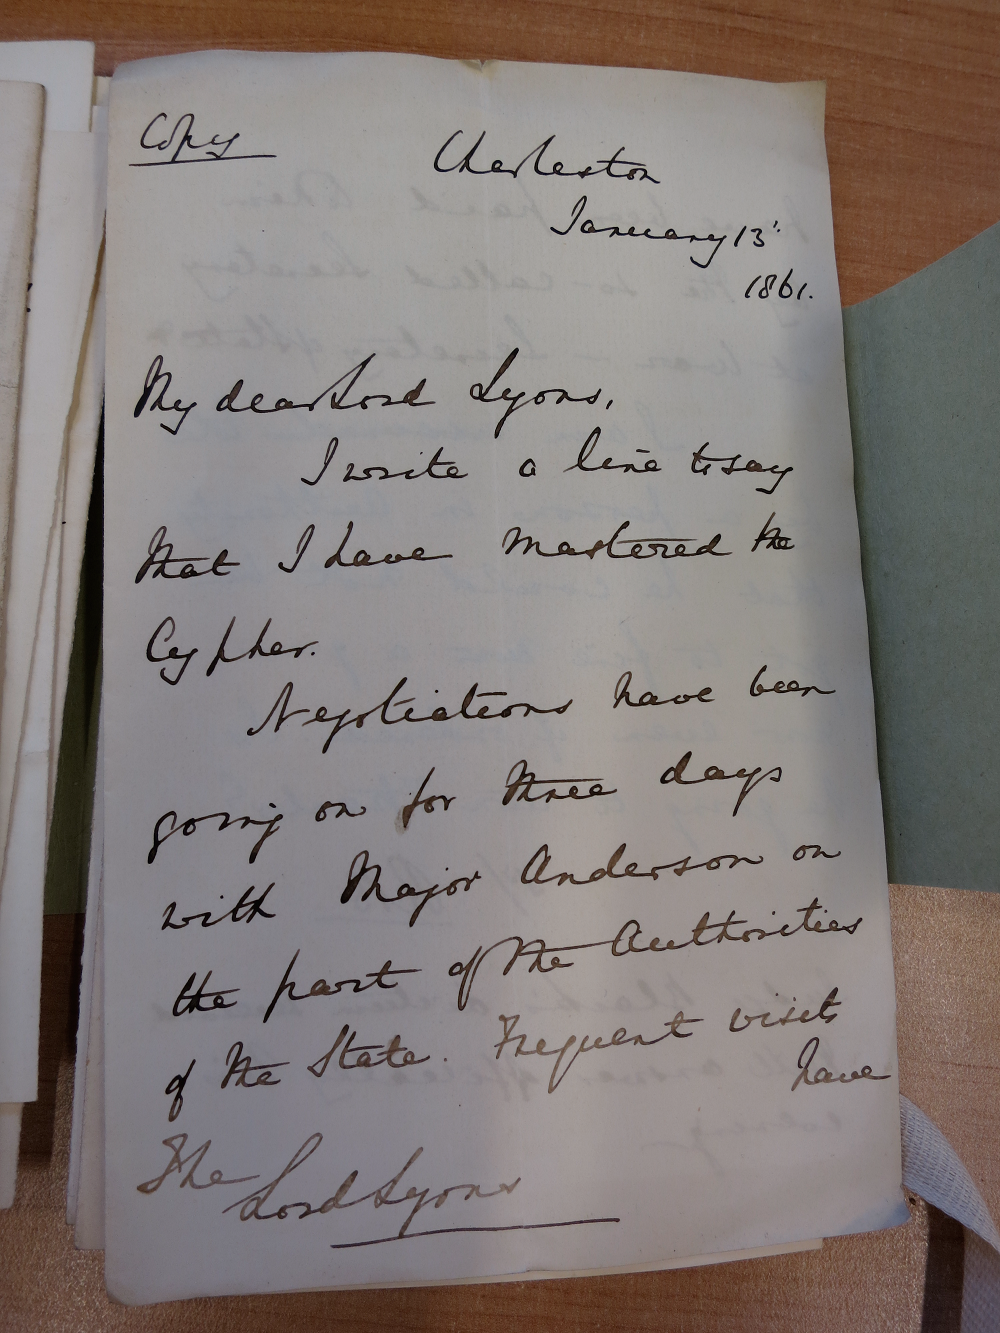 Copy
Charleston
January 13'
1861.
My dear Lord Lyons,
I write a line to say
that I have mastered the
Cypher.
Negotiations have been
going on for three days
with Major Anderson on
the part of the Authorities
of the State. Frequent visits
have
The
Lord Lyons